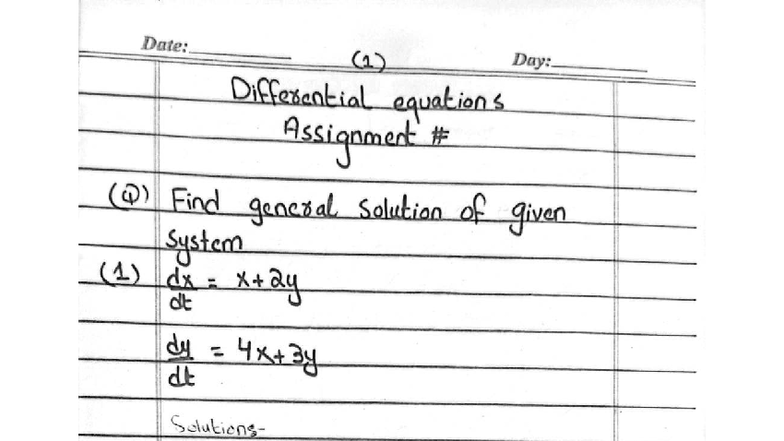 Date:
(1)
Day:
Differential equations
Assignment #
(Q) Find general solution of given
system
(1) dx/dt = x+2y
dy/dt = 4x+3y
Solution:-